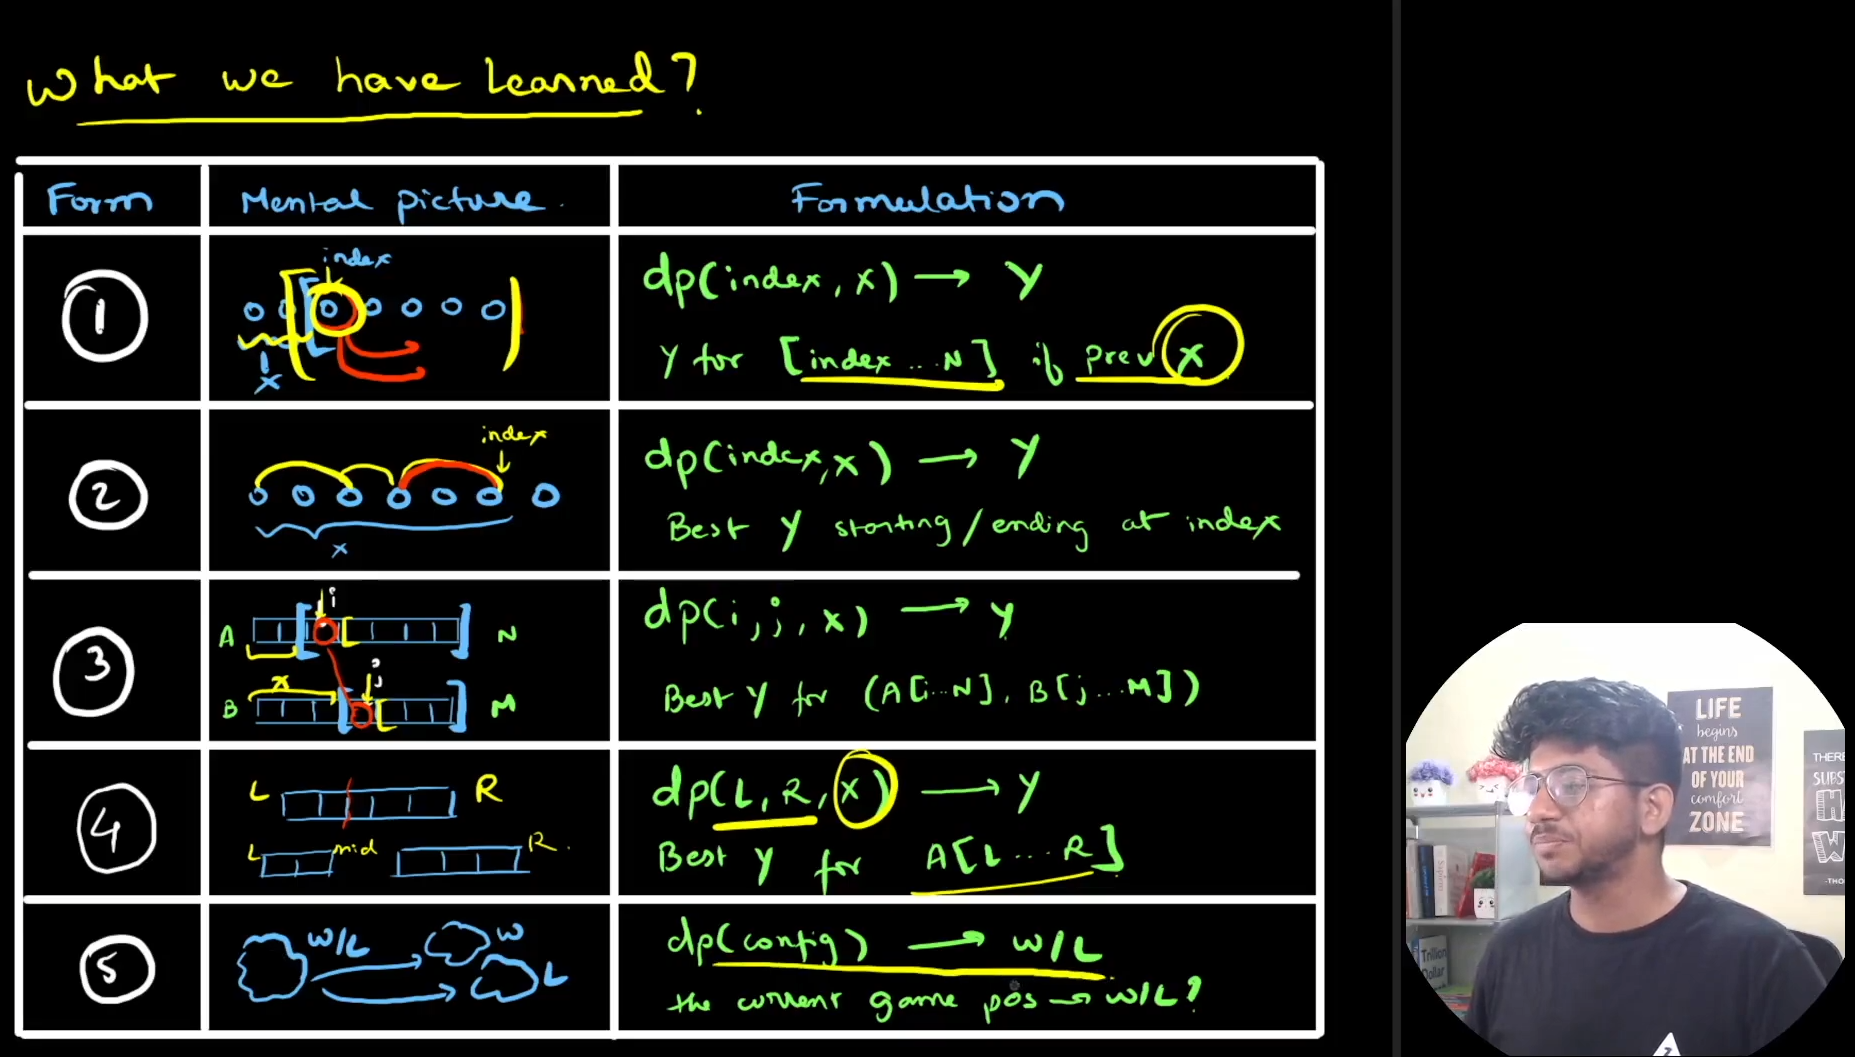 What we have Learned?
Form Mental picture. Formulation
1
index
x
dp(index, x) → Y
Y for [index...N] if prev x
2
index
x
dp(index, x) → Y
Best Y starting/ending at index
3
i
A N
j
x
B M
dp(i, j, x) → Y
Best Y for (A[i...N], B[j...M])
4
L R
L mid R.
dp(L, R, x) → Y
Best Y for A[L...R]
5
W/L W
L
dp(config) → W/L
the current game pos → W/L?
LIFE
begins
AT THE END
OF YOUR
comfort
ZONE
THERE
SUBS
Trillion
Dollar